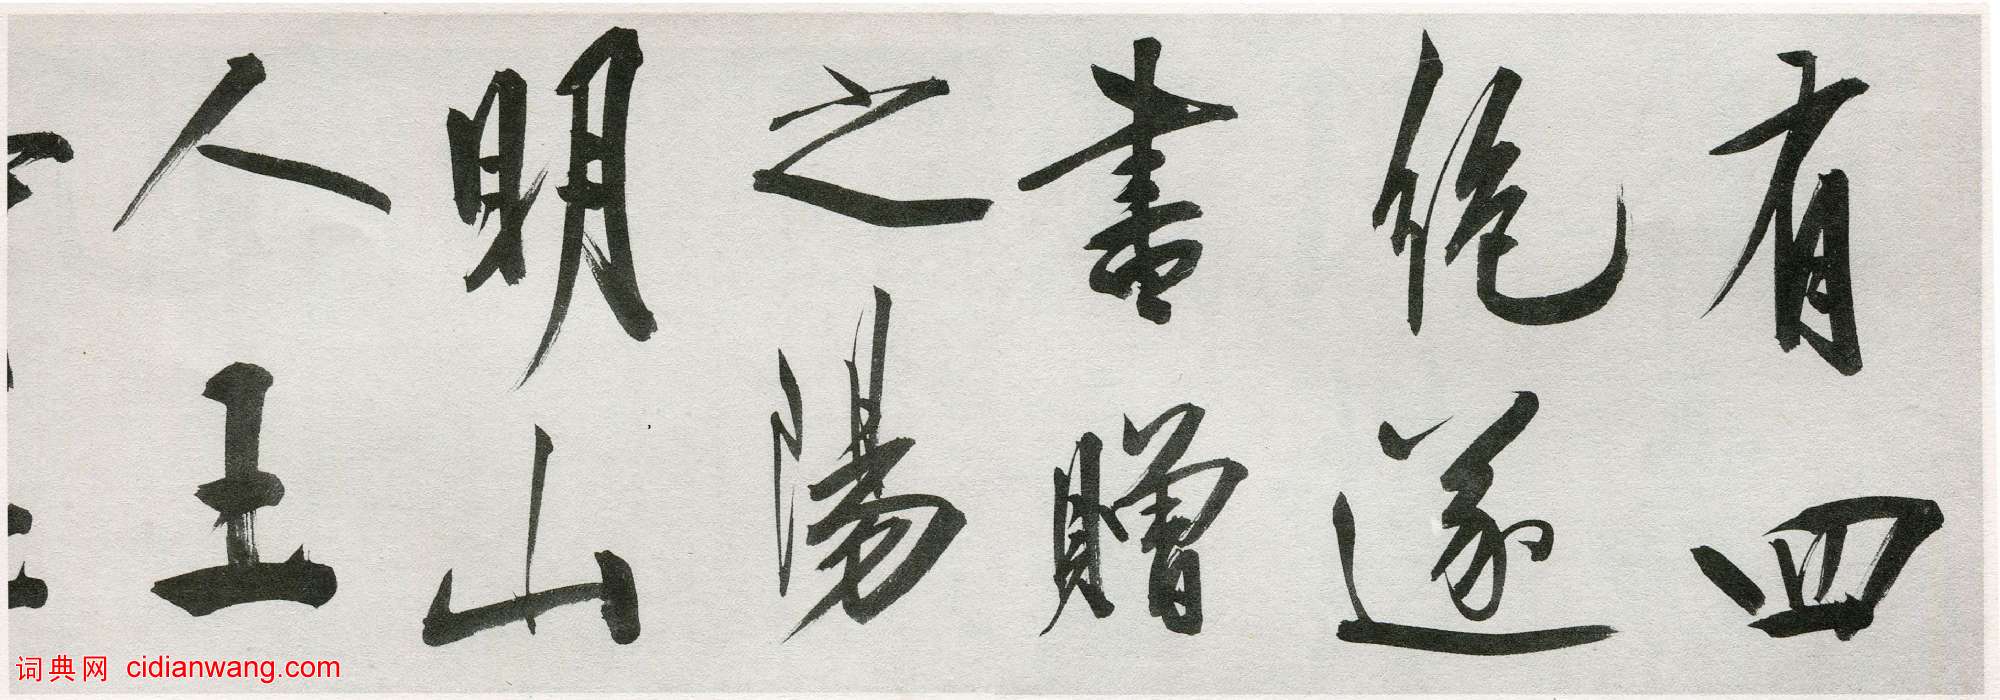 有四
絶遂
書贈
之陽
明山
人王
词典网 cidianwang.com